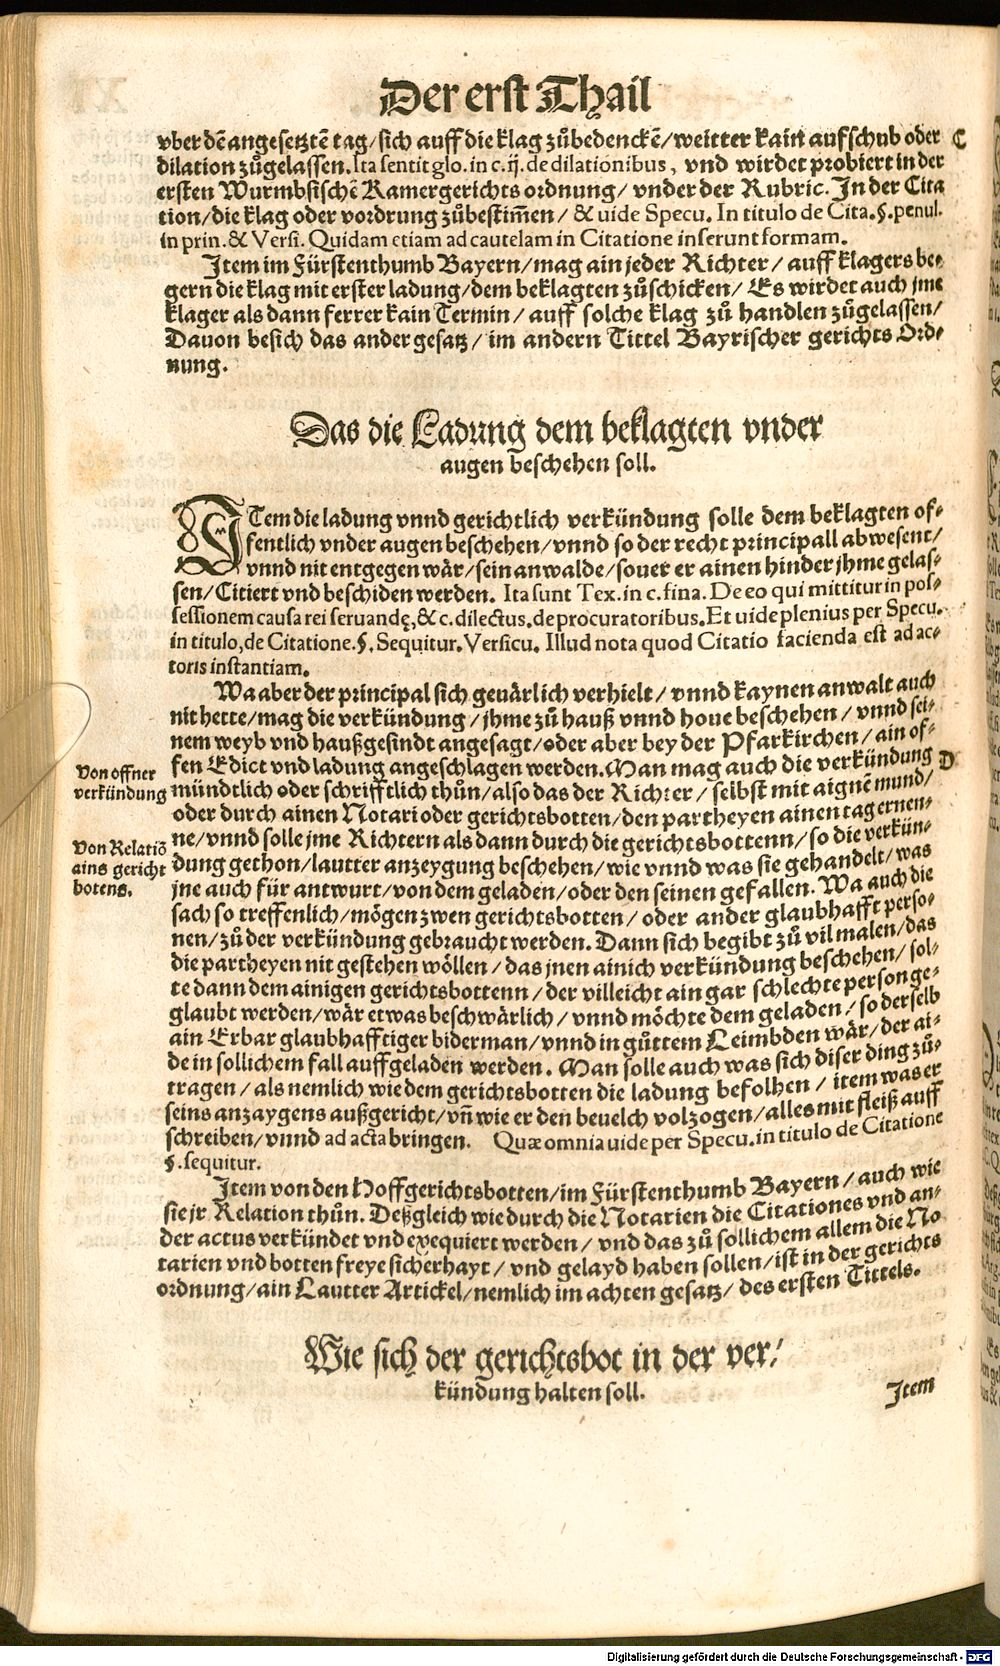 Der erst Thail
vber dẽ angesetztẽ tag/sich auff die klag zůbedenckẽ/weitter kain aufschub oder C
dilation zůgelassen. Ita sentit glo. in c. ij. de dilationibus, vnd wirdet probiert in der
ersten Wurmbsischẽ Kamergerichts ordnung/ vnder der Rubric. In der Cita
tion/die klag oder vordrung zůbestim̃en/ & uide Specu. In titulo de Cita. §. penul.
in prin. & Versi. Quidam etiam ad cautelam in Citatione inserunt formam.
Item im Fürstenthumb Bayern/mag ain jeder Richter/ auff klagers be-
gern die klag mit erster ladung/dem beklagten zůschicken/ Es wirdet auch jme
klager als dann ferrer kain Termin/ auff solche klag zů handlen zůgelassen/
Dauon besich das ander gesatz/ im andern Tittel Bayrischer gerichts Ord-
nung.
Das die Ladung dem beklagten vnder
augen beschehen soll.
ITem die ladung vnnd gerichtlich verkündung solle dem beklagten of-
fentlich vnder augen beschehen/vnnd so der recht principall abwesent/
vnnd nit entgegen wär/sein anwalde/souer er ainen hinder jhme gelas-
sen/Citiert vnd beschiden werden. Ita sunt Tex. in c. fina. De eo qui mittitur in pos-
sessionem causa rei seruandę, & c. dilectus. de procuratoribus. Et uide plenius per Specu.
in titulo, de Citatione. §. Sequitur. Versicu. Illud nota quod Citatio facienda est ad ac-
toris instantiam.
Wa aber der principal sich geuärlich verhielt/ vnnd kaynen anwalt auch
nit hette/mag die verkündung/jhme zů hauß vnnd houe beschehen/ vnnd sei-
nem weyb vnd haußgesindt angesagt/oder aber bey der Pfarkirchen/ ain of-
fen Edict vnd ladung angeschlagen werden. Man mag auch die verkündung D
Von offner
verkündung
mündtlich oder schrifftlich thůn/also das der Richter/ selbst mit aignẽ mund/
oder durch ainen Notari oder gerichtsbotten/den partheyen ainen tag ernen-
ne/vnnd solle jme Richtern als dann durch die gerichtsbottenn/so die verkün-
Von Relatiõ
ains gericht
botens.
dung gethon/lautter anzeygung beschehen/wie vnnd was sie gehandelt/was
jne auch für antwurt/von dem geladen/oder den seinen gefallen. Wa auch die
sach so treffenlich/mögen zwen gerichtsbotten/ oder ander glaubhafft perso-
nen/zů der verkündung gebraucht werden. Dann sich begibt zů vil malen/das
die partheyen nit gestehen wöllen/das jnen ainich verkündung beschehen/ sol-
te dann dem ainigen gerichtsbottenn/der villeicht ain gar schlechte person ge-
glaubt werden/wär etwas beschwärlich/vnnd möchte dem geladen/so derselb
ain Erbar glaubhafftiger biderman/vnnd in gůttem Leimbden wär/der ai-
de in sollichem fall auffgeladen werden. Man solle auch was sich diser ding zů-
tragen/als nemlich wie dem gerichtsbotten die ladung befolhen/ item was er
seins anzaygens außgericht/vñ wie er den beuelch volzogen/alles mit fleiß auff
schreiben/vnnd ad acta bringen. Quæ omnia uide per Specu. in titulo de Citatione
§. sequitur.
Item von den Hoffgerichtsbotten/im Fürstenthumb Bayern/auch wie
sie jr Relation thůn. Deßgleich wie durch die Notarien die Citationes vnd an-
der actus verkündet vnd exequiert werden/ vnd das zů sollichem allem die No
tarien vnd botten freye sicherhayt/ vnd gelayd haben sollen/ist in der gerichts
ordnung/ain Lautter Artickel/nemlich im achten gesatz/ des ersten Tittels.
Wie sich der gerichtsbot in der ver-
kündung halten soll.
Item
Digitalisierung gefördert durch die Deutsche Forschungsgemeinschaft - DFG